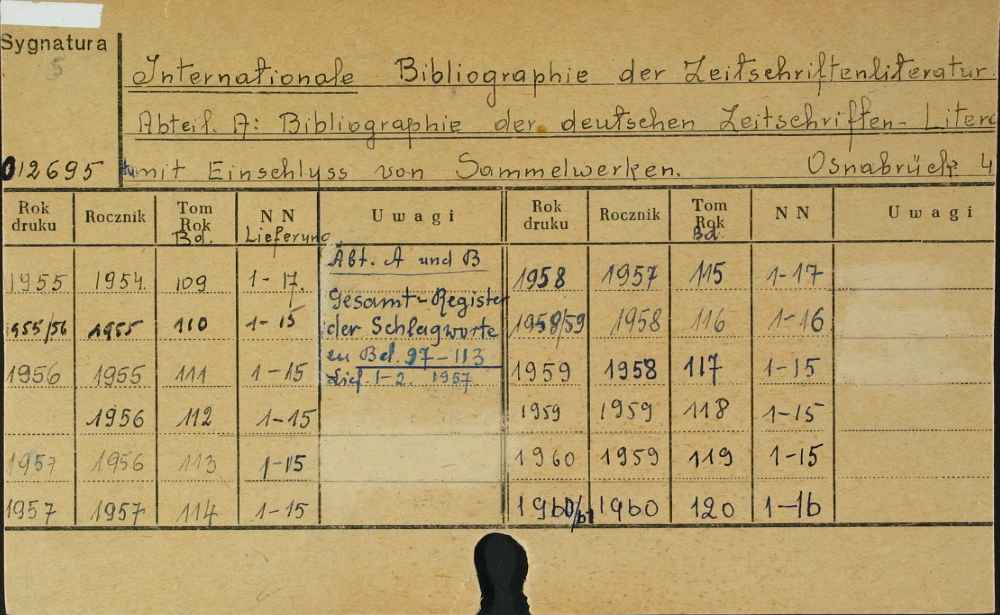 Sygnatura
5
Internationale Bibliographie der Zeitschriftenliteratur.
Abteil. A: Bibliographie der deutschen Zeitschriften-Litera
012695 mit Einschluss von Sammelwerken. Osnabrück 4
Rok druku Rocznik Tom Rok Bd. NN Lieferung Uwagi Rok druku Rocznik Tom Rok Bd. NN Uwagi
1955 1954. 109 1-17. 1958 1957 115 1-17
955/56 1955 110 1-15 1958/59 1958 116 1-16
1956 1955 111 1-15 1959 1958 117 1-15
1956 112 1-15 1959 1959 118 1-15
1957 1956 113 1-15 1960 1959 119 1-15
1957 1957 114 1-15 1960/61 1960 120 1-16
Abt. A und B
Gesamt-Register
der Schlagworte
zu Bd. 97-113
Lief. 1-2. 1957